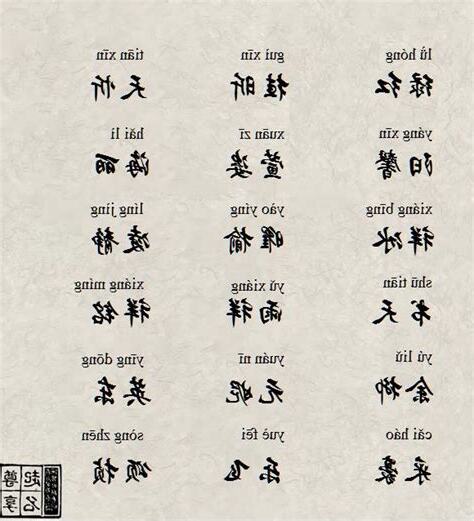 lǜ hóng guì xīn tiān xīn
绿红 桂昕 天忻
yáng xīn xuān zī hǎi lì
阳馨 萱姿 海丽
xiáng bīng yào yíng líng jìng
祥冰 曜 凌静
shū tiān yǔ xiáng xiáng míng
书天 雨祥 祥铭
yú liǔ yuán nī yīng dōng
余柳 元妮 英东
cǎi háo yuè fēi sòng zhēn
采豪 乐飞 颂桢
起名
尊享